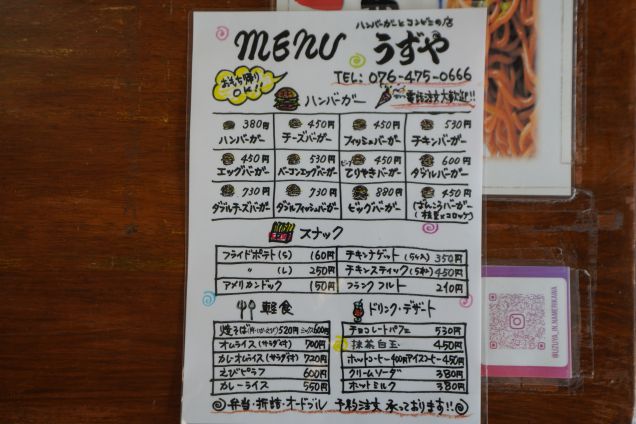 ハンバーガーとコンビニの店
MENU うずや
おもち帰りOK!!
TEL: 076-475-0666
ハンバーガー 電話注文大歓迎!!
380円 ハンバーガー
450円 チーズバーガー
450円 フィッシュバーガー
530円 チキンバーガー
450円 エッグバーガー
530円 ベーコンエッグバーガー
450円 てりやきバーガー
600円 ダブルバーガー
730円 ダブルチーズバーガー
730円 ダブルフィッシュバーガー
880円 ビッグバーガー
450円
スナック
フライドポテト(S) 160円
〃 (L) 250円
アメリカンドック 150円
チキンナゲット(5ヶ入) 350円
チキンスティック(5本) 450円
フランクフルト 210円
軽食
焼そば 520円 ミックス600円
オムライス(サラダ付) 700円
カレーオムライス(サラダ付) 720円
えびピラフ 600円
カレーライス 550円
ドリンク・デザート
チョコレートパフェ 530円
抹茶白玉 450円
ホットコーヒー400円アイスコーヒー450円
クリームソーダ 380円
ホットミルク 380円
弁当・折詰・オードブル 予約注文 承っております!!
@UZUYA_IN.NAMERIKAWA